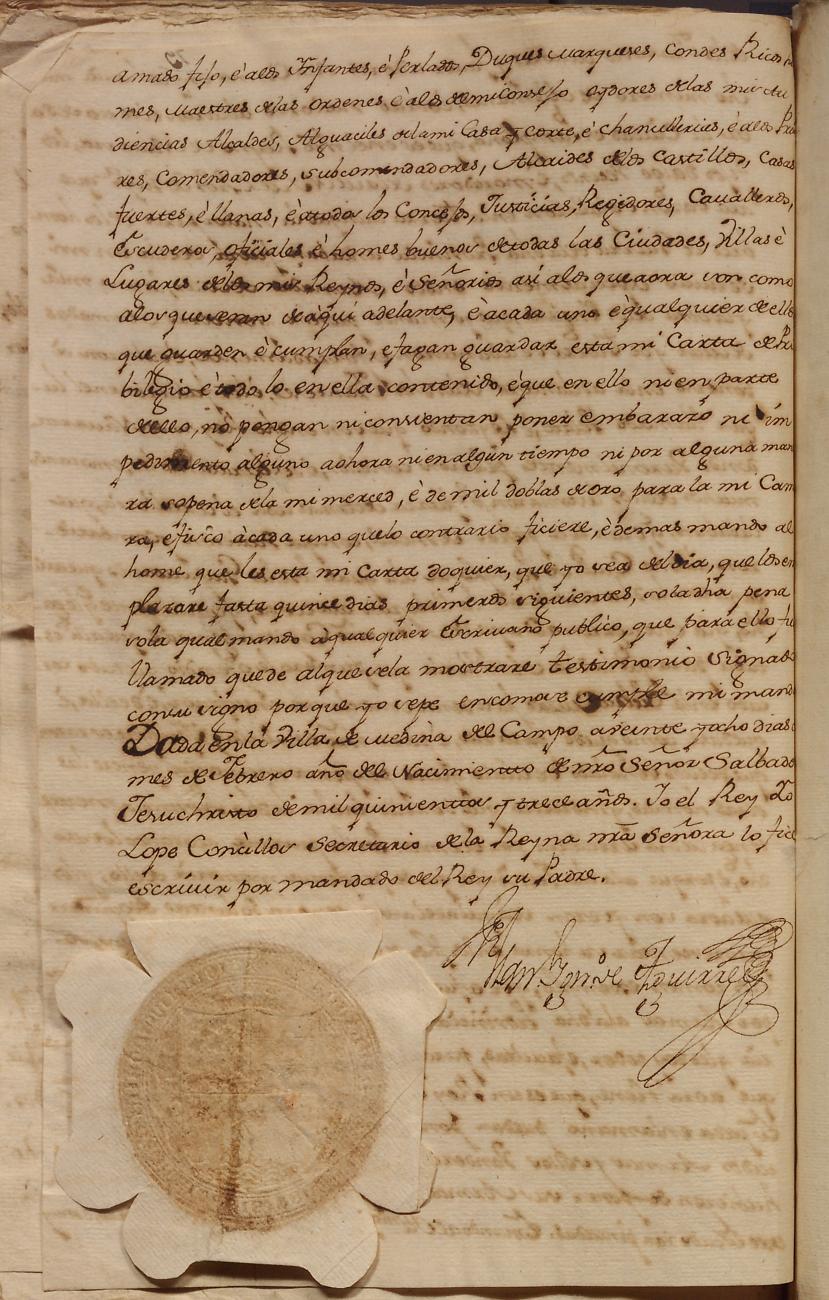 amado fijo, è alos Ynfantes, è Perlados, Duques Marqueses, Condes Ricos
mes, Maestres delas ordenes è alos demi Consejo oydores delas mis Au
diencias Alcaldes, Alguaciles dela mi Casa y corte, è chancillerias, è alos Prio
res, Comendadores, subcomendadores, Alcaides delos Castillos, Casas
fuertes, è llanas, è atodos los Concejos, Justicias, Regidores, Cavalleros,
Escuderos, oficiales è homes buenos detodas las Ciudades, Villas è
Lugares delos mis Reynos, è Señorios asi alos que aora son como
alos que seran de aqui adelante, è acada uno è qualquier dellos
que guarden è cumplan, e fagan guardar esta mi Carta de Pri
bilegio è todo lo en ella contenido, è que en ello ni en parte
dello, no pongan ni consientan poner embarazo ni im
pedimento alguno aohora ni en algun tiempo ni por alguna mane
ra sopena dela mi merced, è de mil doblas de oro para la mi Cama
ra, è fisco à cada uno quelo contrario ficiere, è demas mando al
home que les esta mi Carta doquier, que yo sea del dia, que los em
plazare fasta quince dias primeros siguientes, sola dha pena
sola qual mando à qualquier Escrivano publico, que para ello fu
llamado que de alque sela mostrare testimonio signado
consu signo porque yo sepa en como se cumple mi mand
Dada en la Villa de Medina del Campo a veinte y ocho dias
mes de Febrero año del Nacimiento de nro Señor Salbado
Jesuchristo demil quinientos y trece años. Yo el Rey Yo
Lope Concillos Secretario dela Reyna nra Señora lo fice
escrivir por mandado del Rey su Padre.